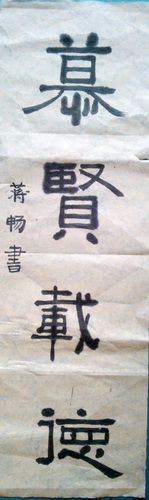 慕賢載德
蒋畅書